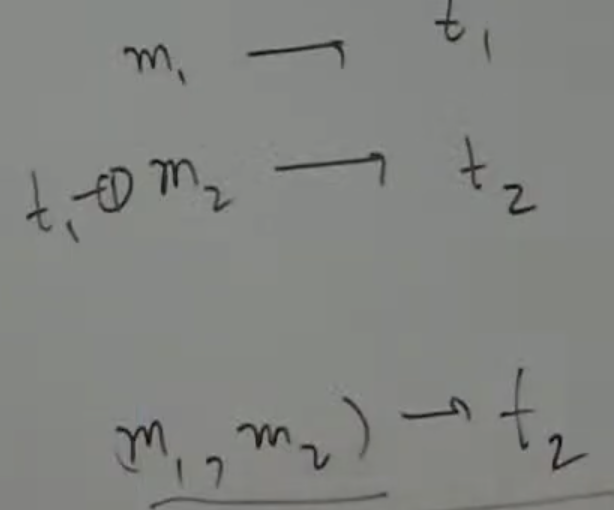 m₁ → t₁
t₁ ⊕ m₂ → t₂
(m₁, m₂) → t₂